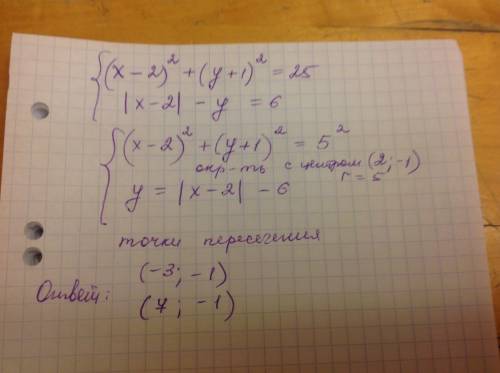 (x-2)² + (y+1)² = 25
|x-2| - y = 6
(x-2)² + (y+1)² = 5²
окр-ть с центром (2; -1)
r = 5
y = |x-2| - 6
точки пересечения
(-3; -1)
Ответ:
(7; -1)